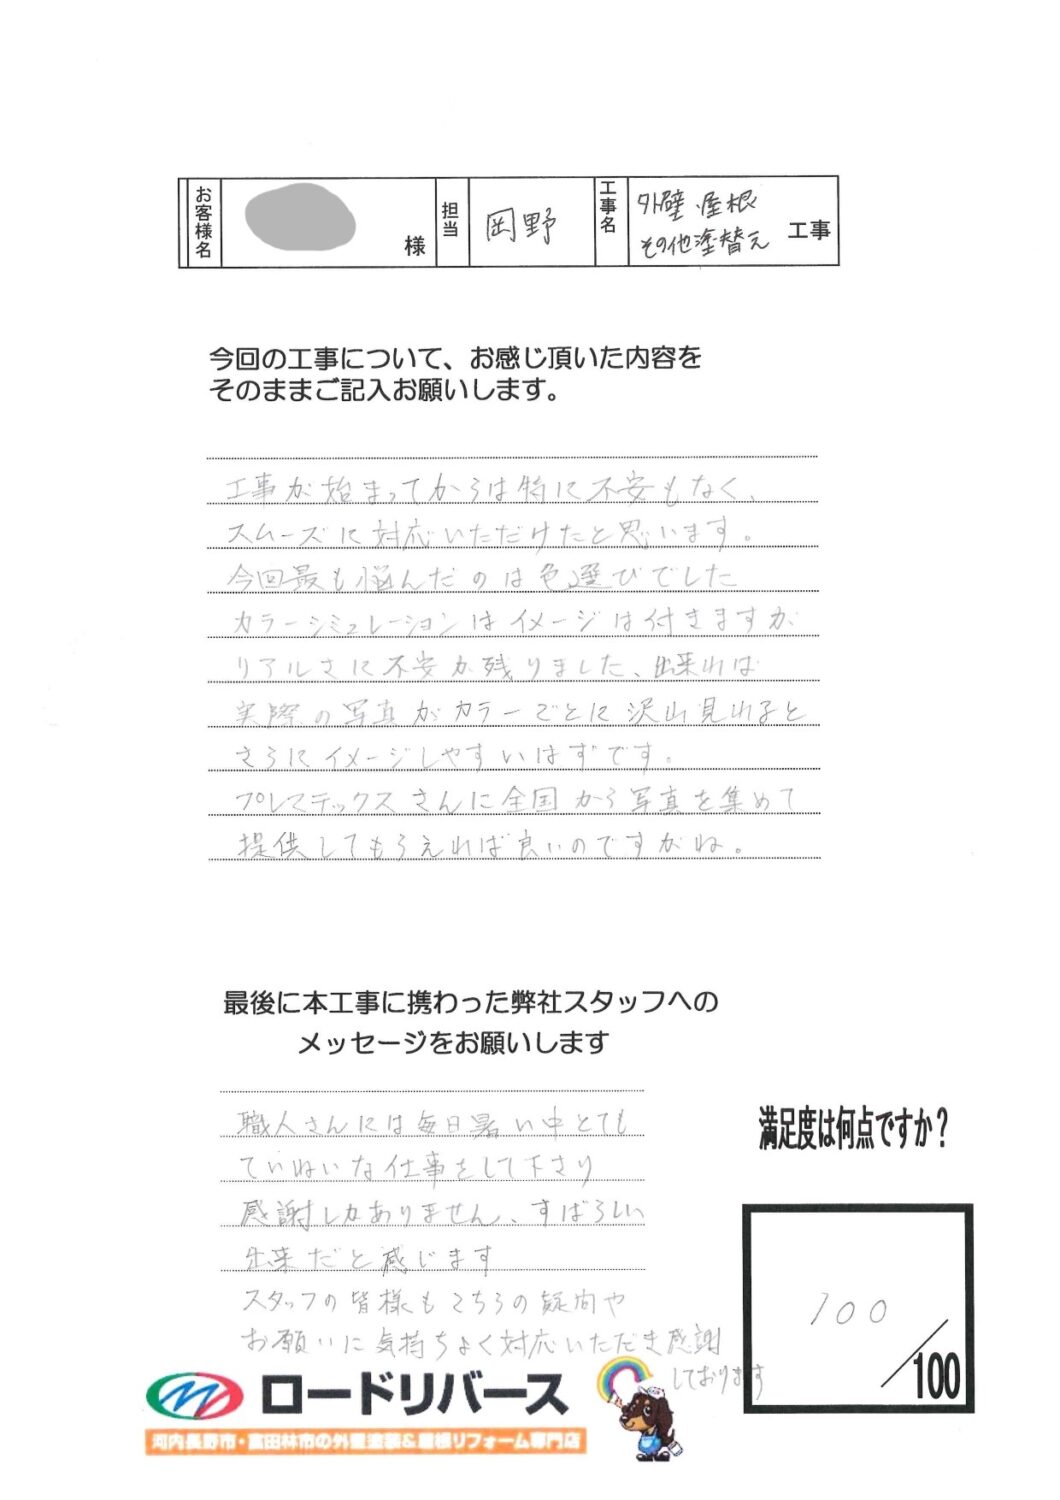 お客様名
様
担当
岡野
工事名
外壁・屋根
その他塗替え
工事
今回の工事について、お感じ頂いた内容を
そのままご記入お願いします。
工事が始まってからは特に不安もなく、
スムーズに対応いただけたと思います。
今回最も悩んだのは色選びでした
カラーシミュレーションはイメージは付きますが
リアルさに不安が残りました、出来れば
実際の写真がカラーごとに沢山見れると
さらにイメージしやすいはずです。
プレマテックスさんに全国から写真を集めて
提供してもらえれば良いのですがね。
最後に本工事に携わった弊社スタッフへの
メッセージをお願いします
職人さんには毎日暑い中とても
ていねいな仕事をして下さり
感謝しかありません、すばらしい
出来だと感じます
スタッフの皆様もこちらの疑問や
お願いに気持ちよく対応いただき感謝
しております
満足度は何点ですか？
100
/100
ロードリバース
河内長野市・富田林市の外壁塗装&屋根リフォーム専門店